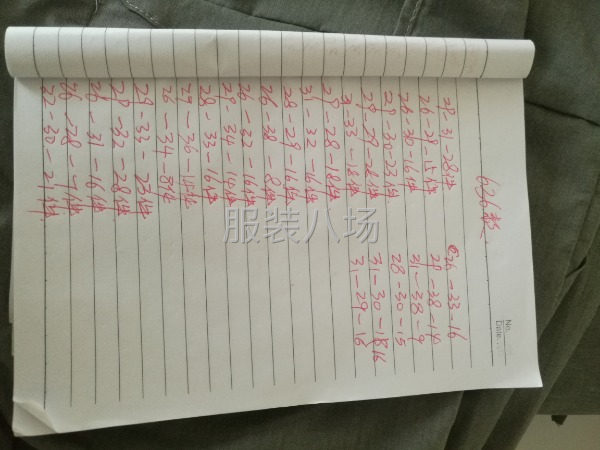 626款
28-31-28件
26-28-15件
26-30-16件
28-30-23件
29-29-18件
31-33-18件
28-28-18件
31-32-16件
28-29-16件
26-38-8件
26-32-16件
28-34-14件
28-33-16件
29-36-15件
26-34-8件
29-33-23件
28-32-28件
26-31-16件
26-28-7件
22-30-21件
26-33-16
28-38-14
31-38-9
28-30-15
31-30-1816
31-29-16
服装八场
No.
Date